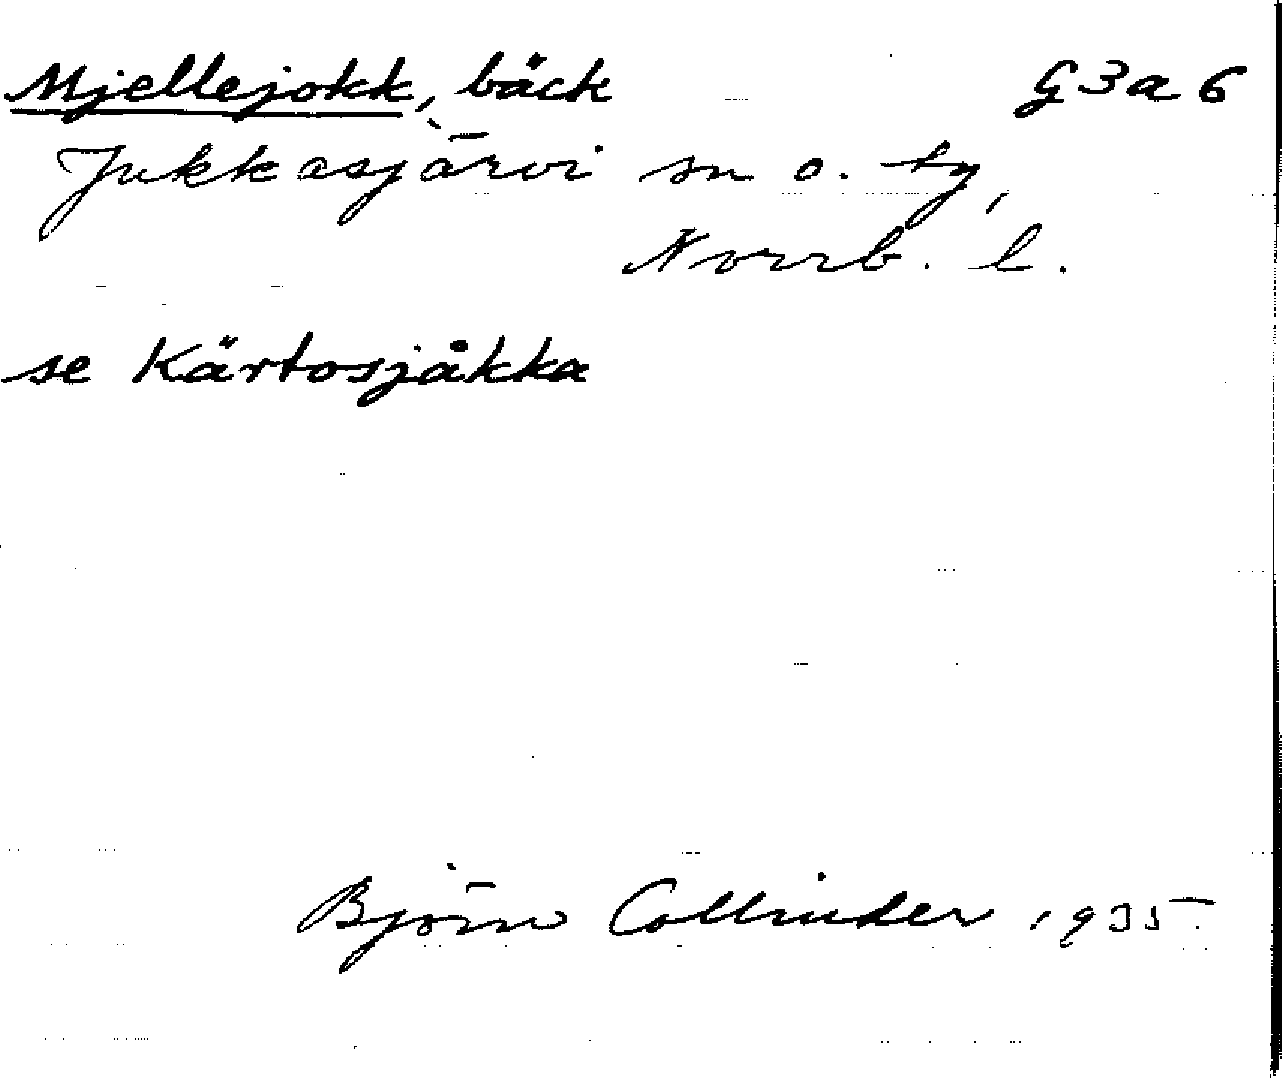 Mjellejokk, bäck G3a6
Jukkasjärvi sn o. tg,
Norrb. l.
se Kärtosjåkka
Björn Collinder 1935.